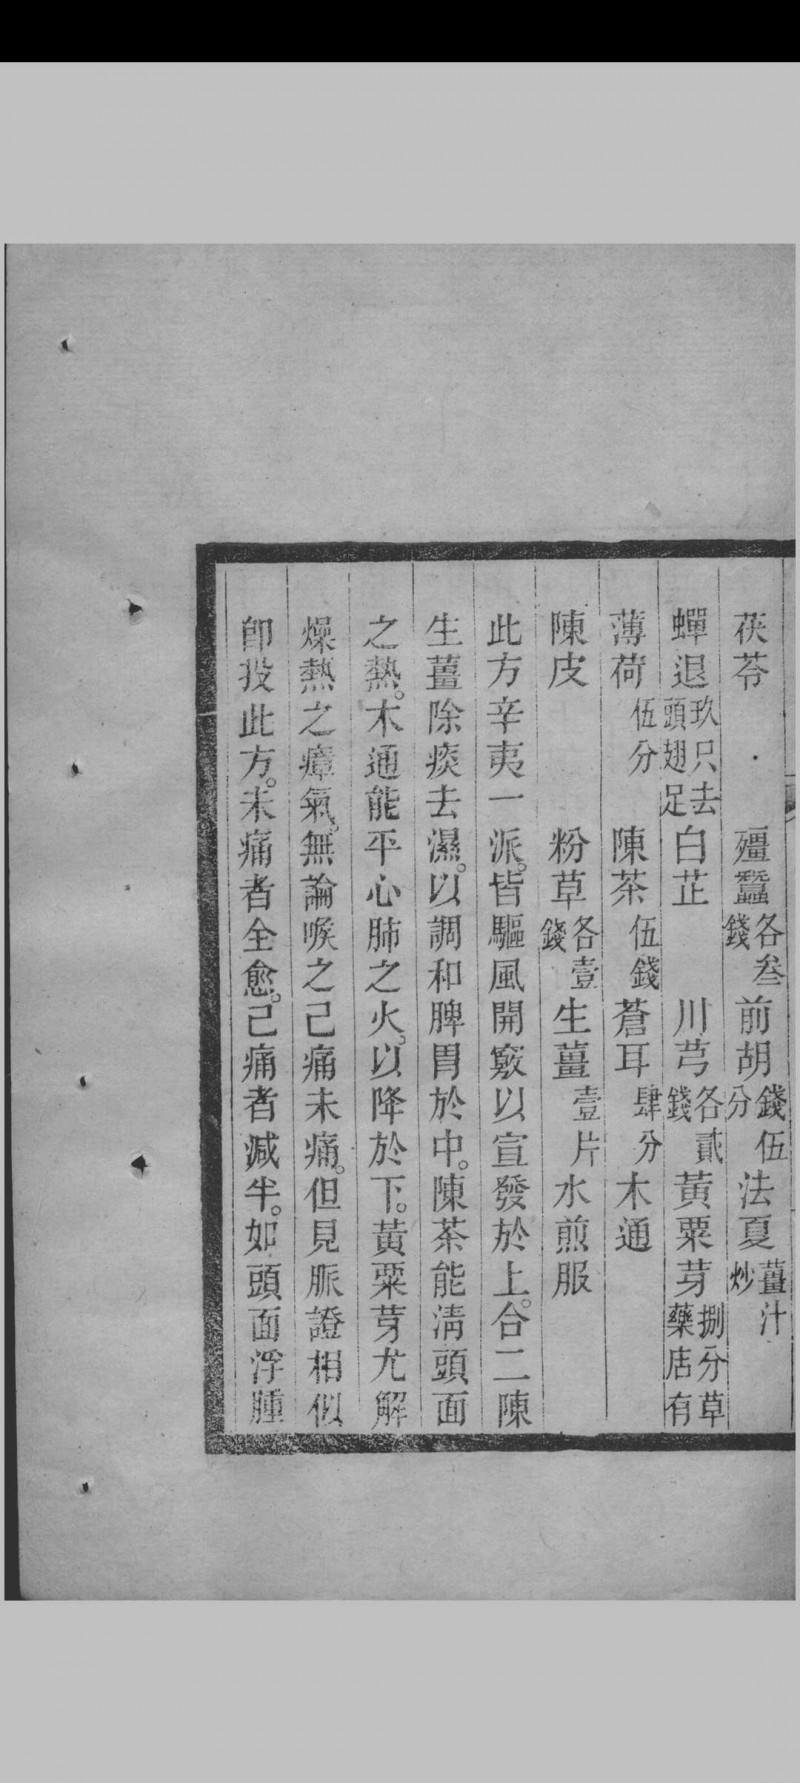 茯苓 殭蠶各叁錢 前胡錢伍分 法夏薑汁炒
蟬退玖只去頭翅足 白芷 川芎各貳錢 黃粟芽捌分草藥店有
薄荷伍分 陳茶伍錢 蒼耳肆分 木通
陳皮 粉草各壹錢 生薑壹片 水煎服
此方辛夷一派。皆驅風開竅以宣發於上。合二陳
生薑除痰去濕。以調和脾胃於中。陳茶能清頭面
之熱。木通能平心肺之火。以降於下。黃粟芽尤解
燥熱之瘴氣。無論喉之已痛未痛。但見脈證相似
卽投此方。未痛者全愈。已痛者減半。如頭面浮腫